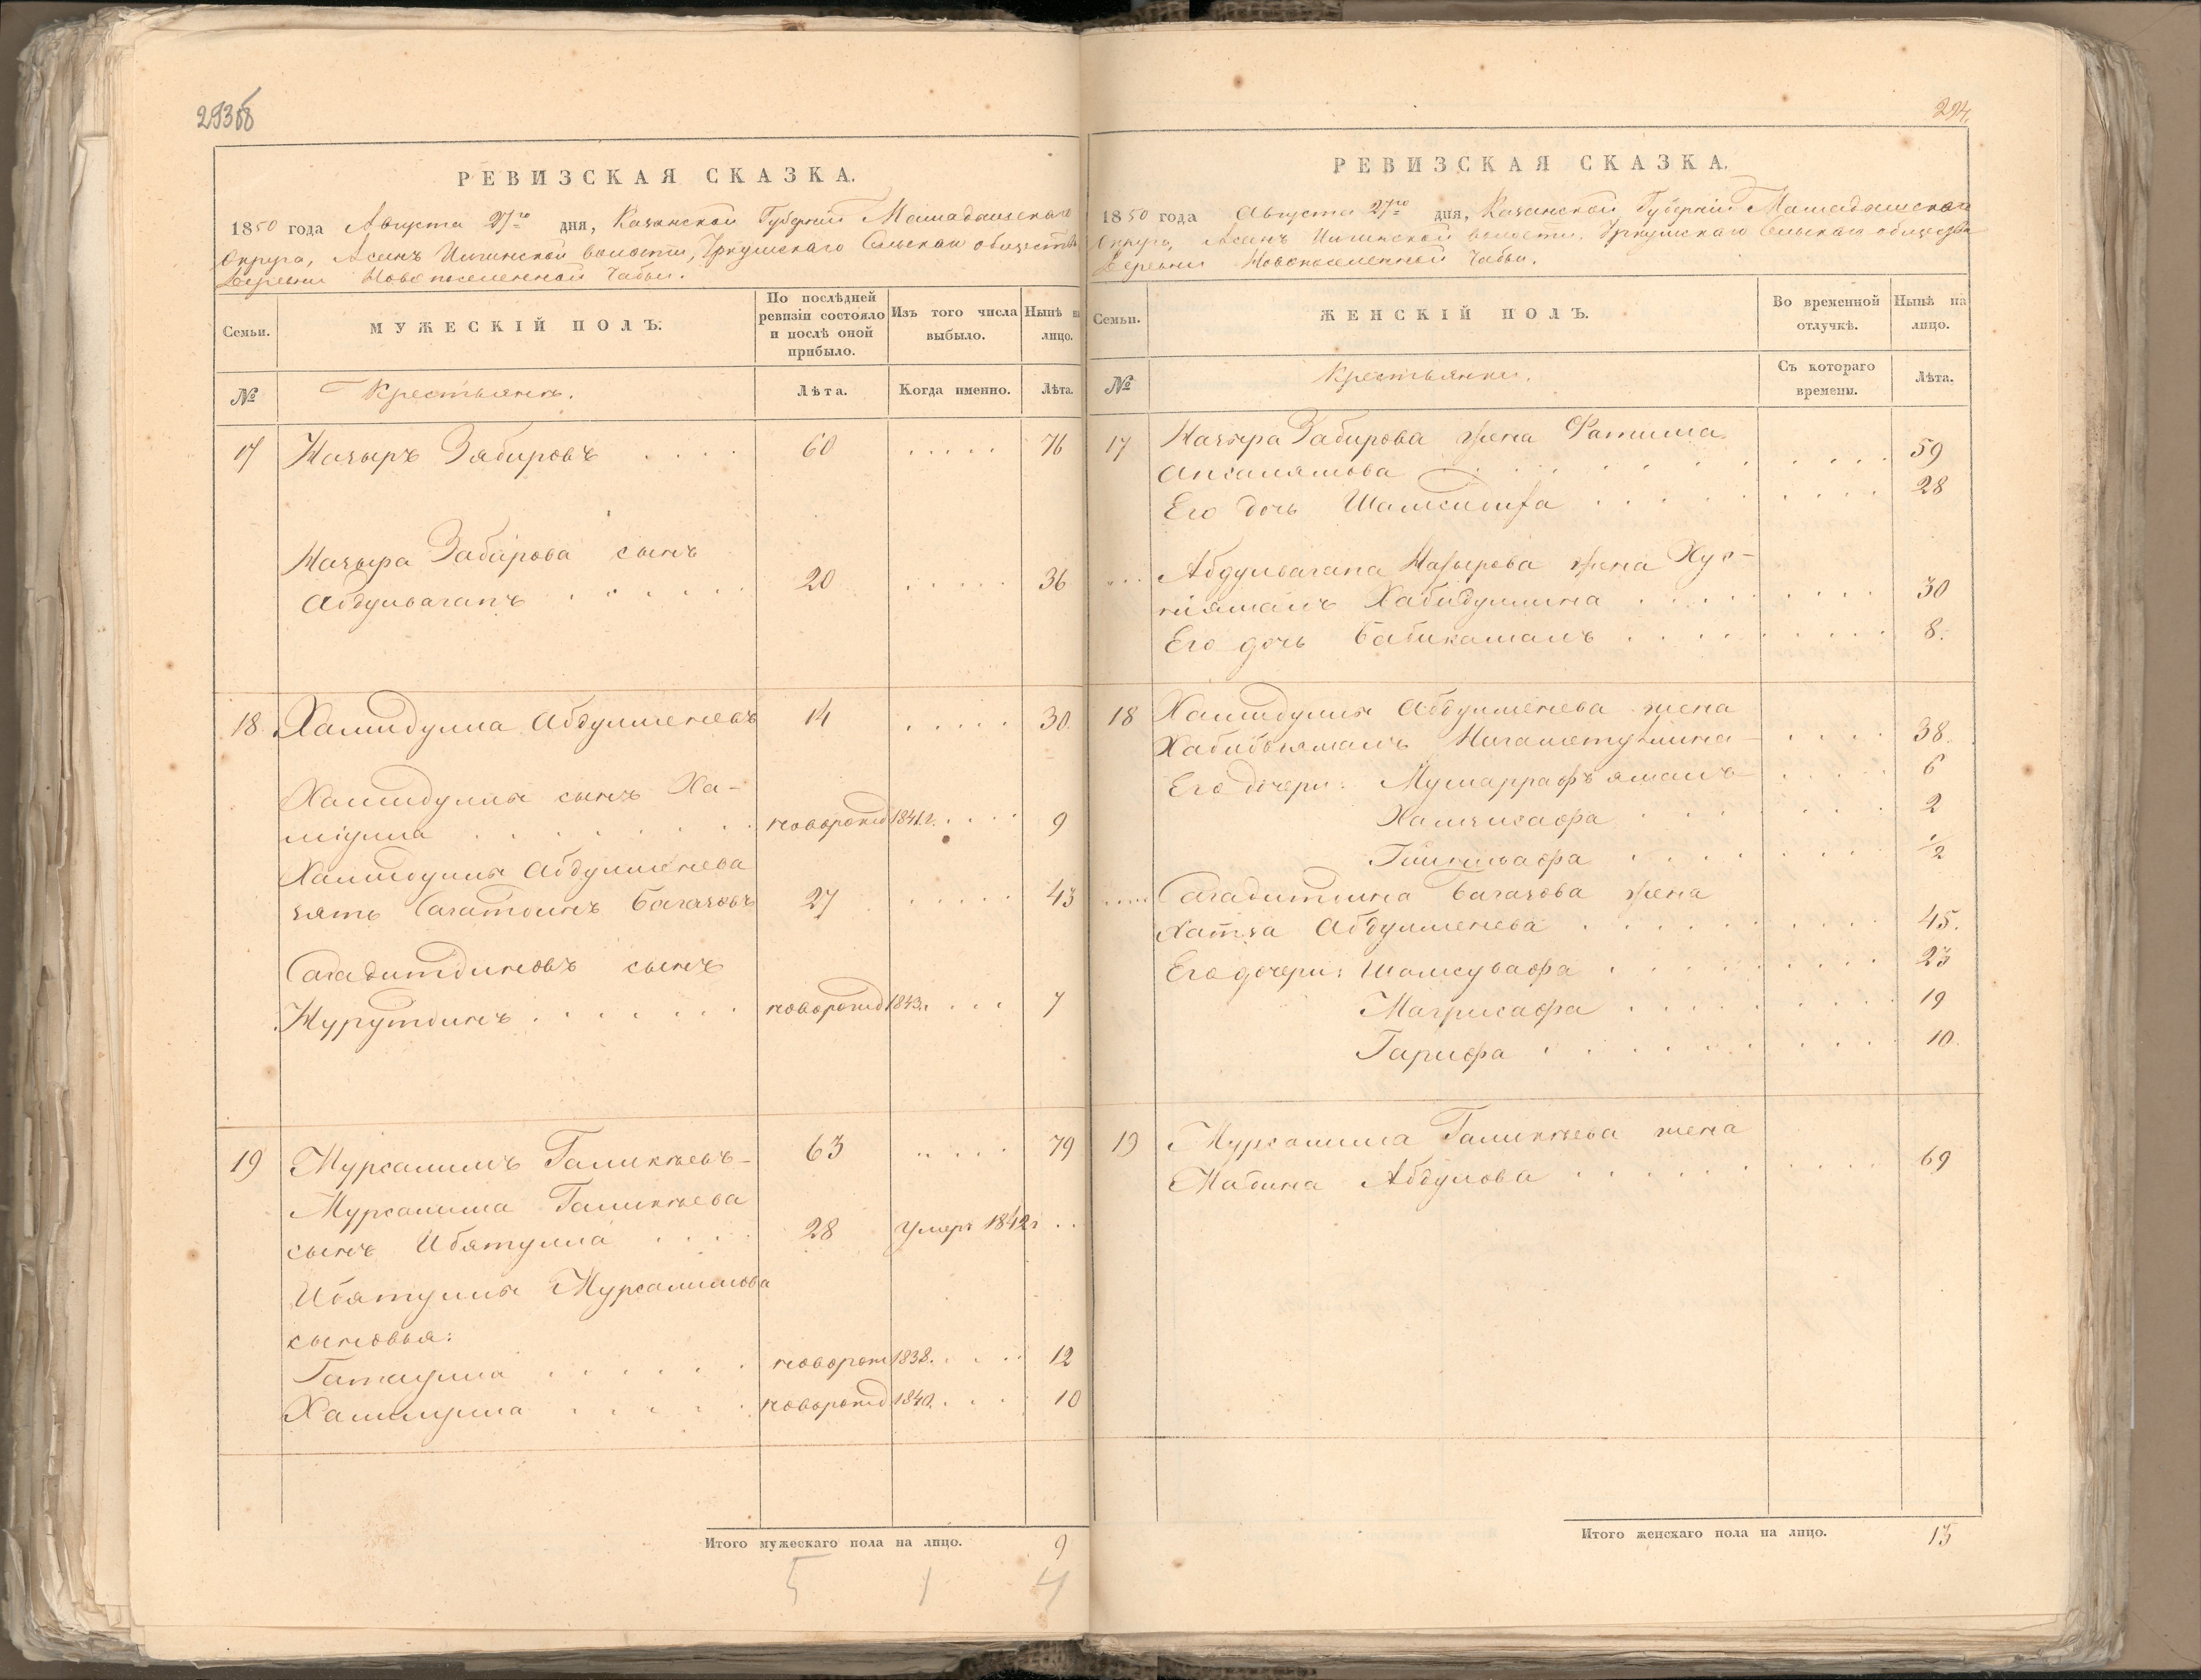 293об
РЕВИЗСКАЯ СКАЗКА.
1850 года Августа 27го дня, Казанской Губернии Мамадышскаго
Округа, Асанъ Илгинской волости, Уркушскаго Сельскаго общества
Деревни Новопоселенной Чабьи.
Семьи.
МУЖЕСКІЙ ПОЛЪ.
По послѣдней
ревизіи состояло
и послѣ оной
прибыло.
Изъ того числа
выбыло.
Нынѣ на
лицо.
№
Крестьянъ.
Лѣта.
Когда именно.
Лѣта.
17 Назыръ Забировъ 60 76
Назыра Забирова сынъ
Абдулвагапъ 20 36
18 Хамидулла Абдулменевъ 14 30
Хамидуллы сынъ Ха-
мідулла новорожд 1841 г. 9
Хамидуллы Абдулменева
зять Сагатдинъ Багазовъ 27 43
Сагадитдиновъ сынъ
Нурутдинъ новорожд 1843 г. 7
19 Мурсалимъ Галикѣевъ 63 79
Мурсалима Галикѣева
сынъ Ибятулла 28 Умеръ 1842 г
Ибятуллы Мурсалимова
сыновья:
Гатаулла новорож 1838. 12
Халиулла новорожд 1840. 10
Итого мужескаго пола на лицо. 9
5 1 4
294.
РЕВИЗСКАЯ СКАЗКА.
1850 года Августа 27го дня, Казанской Губерніи Мамадышскаго
Округа, Асанъ Илгинской волости, Уркушскаго Сельскаго общества
Деревни Новопоселенной Чабьи.
Семьи.
ЖЕНСКІЙ ПОЛЪ.
Во временной
отлучкѣ.
Нынѣ на
лицо.
№
Крестьянки.
Съ котораго
времени.
Лѣта.
17 Назыра Забирова жена Фатима
Апсалямова 59
Его дочь 28
Абдулвагапа Назырова жена Хус-
ніямалъ Хабидуллина 30
Его дочь Бабикамалъ 8.
18 Хамидуллы Абдулменева жена
Хабибьямалъ 38.
Его дочери: Мушаррафъямалъ 6
2
1/2
Сагадитдина Багазова жена
Хатіза Абдулменева 45.
Его дочери: Шамсувафа 23
Магрисафа 19
Гарифа 10.
19 Мурсалима Галикѣева жена
Мабина Абдулова 69
Итого женскаго пола на лицо. 13